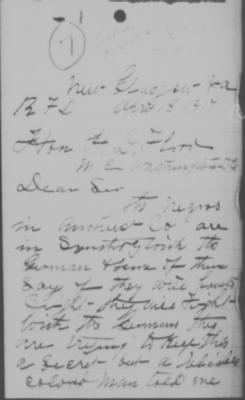 7
New Glasgow Va
R F D April 18 1917
Hon H D Flood
M C Washington D C
Dear Sir
The negros
in Amherst Co are
in with the
German some of them
say if they will have to
fight they will fight
with the Germans they
are trying to keep this
a secret but a
colored man told me